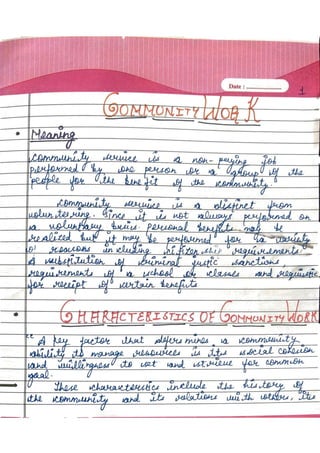 Date :
1
COMMUNITY WORK
• Meaning
Community service is a non-paying job
performed by one person or a group of the
people for the benefit of the community.
Community service is a distinct from
volunteering. Since it is not always performed on
a voluntary basis personal benefits may be
realized but it may be performed for a variety
o' reasons including citizenship requirements
A substitution of criminal justic sanctions
requirements of a school or classes and requisite
for receipt of certain benefits
• CHARACTERISTICS OF COMMUNITY WORK
" A key factor that determines a community
ability to manage resources is its social cohesion
and willingness to act and strieve for common
goal.
These characteristics include the history of
the community and its relations with others, its